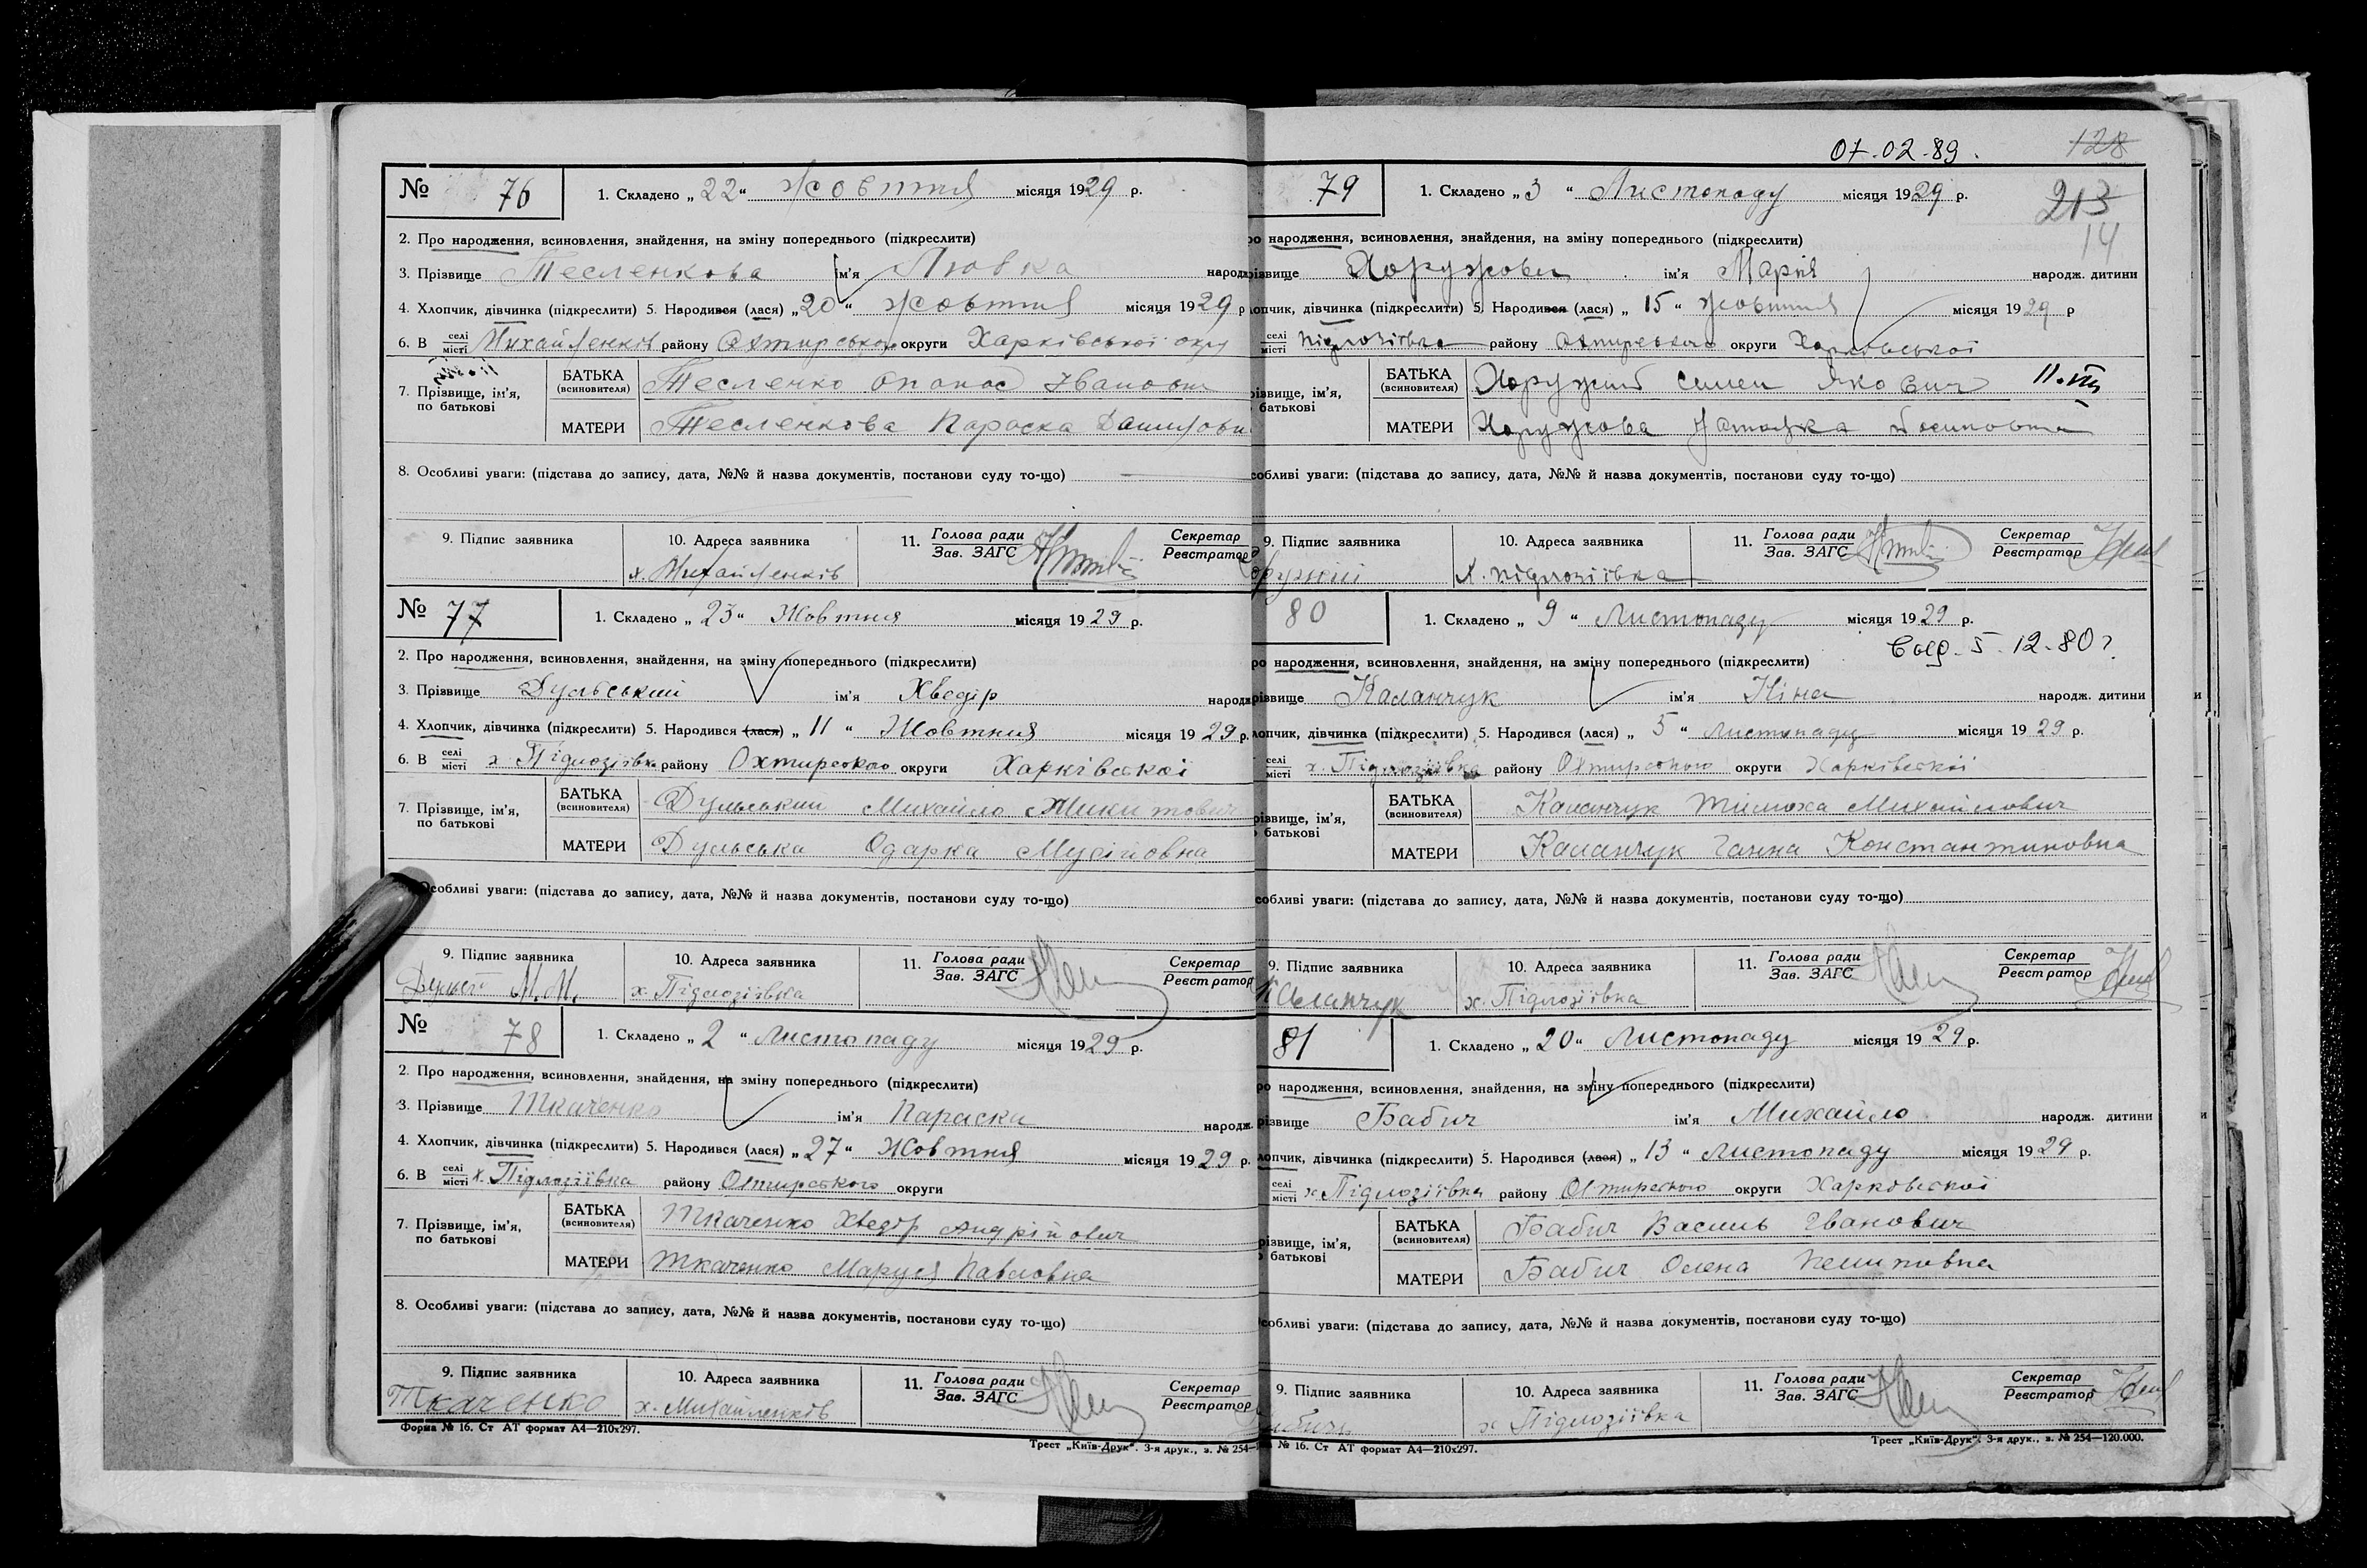 № 76
1. Складено „22“ Жовтня місяця 1929 р.
2. Про народження, всиновлення, знайдення, на зміну попереднього (підкреслити)
3. Прізвище Тесленкова ім'я Любка народж
4. Хлопчик, дівчинка (підкреслити) 5. Народився (лася) „20“ Жовтня місяця 1929 р
6. В селі місті Михайленків району Охтирського округи Харківської окру
7. Прізвище, ім'я, по батькові
БАТЬКА (всиновителя) Тесленко Опанас Іванович
МАТЕРИ Тесленкова Параска Данилови
8. Особливі уваги: (підстава до запису, дата, №№ й назва документів, постанови суду то-що)
9. Підпис заявника
10. Адреса заявника
х. Михайленків
11. Голова ради Зав. ЗАГС
Секретар Реєстратор
№ 77
1. Складено „23“ Жовтня місяця 1929 р.
2. Про народження, всиновлення, знайдення, на зміну попереднього (підкреслити)
3. Прізвище Дульський ім'я Хведір народж
4. Хлопчик, дівчинка (підкреслити) 5. Народився (лася) „11“ Жовтня місяця 1929 р.
6. В селі місті х. Підлозіївка району Охтирського округи Харківскої
7. Прізвище, ім'я, по батькові
БАТЬКА (всиновителя) Дульський Михайло Микитович
МАТЕРИ Дульська Одарка Мусійовна
Особливі уваги: (підстава до запису, дата, №№ й назва документів, постанови суду то-що)
9. Підпис заявника
М.М.
10. Адреса заявника
х. Підлозіївка
11. Голова ради Зав. ЗАГС
Секретар Реєстратор
№ 78
1. Складено „2“ Листопаду місяця 1929 р.
2. Про народження, всиновлення, знайдення, на зміну попереднього (підкреслити)
3. Прізвище Ткаченко ім'я Параска народж.
4. Хлопчик, дівчинка (підкреслити) 5. Народився (лася) „27“ Жовтня місяця 1929 р.
6. В селі місті х. Підлозіївка району Охтирского округи
7. Прізвище, ім'я, по батькові
БАТЬКА (всиновителя) Ткаченко Хведір Андрійович
МАТЕРИ Ткаченко Маруся Павловна
8. Особливі уваги: (підстава до запису, дата, №№ й назва документів, постанови суду то-що)
9. Підпис заявника
Ткаченко
10. Адреса заявника
х. Михайленків
11. Голова ради Зав. ЗАГС
Секретар Реєстратор
Форма № 16. Ст АТ формат А4—210х297.
Трест „Київ-Друк“. 3-я друк., з. № 254—
07.02.89.
128
213
14
79
1. Складено „3“ Листопаду місяця 1929 р.
ро народження, всиновлення, знайдення, на зміну попереднього (підкреслити)
різвище Хоружова ім'я Марія народж. дитини
лопчик, дівчинка (підкреслити) 5. Народився (лася) „15“ Жовтня місяця 1929 р
селі місті Підлозіївка району Охтирського округи Харківської
різвище, ім'я, батькові
БАТЬКА (всиновителя) Хоружий Семен Якович
МАТЕРИ Хоружова
собливі уваги: (підстава до запису, дата, №№ й назва документів, постанови суду то-що)
9. Підпис заявника
10. Адреса заявника
х. Підлозіївка
11. Голова ради Зав. ЗАГС
Секретар Реєстратор
80
1. Складено „9“ Листопаду місяця 1929 р.
5.12.80 г.
ро народження, всиновлення, знайдення, на зміну попереднього (підкреслити)
різвище Каланчук ім'я Ніна народж. дитини
лопчик, дівчинка (підкреслити) 5. Народився (лася) „5“ Листопаду місяця 1929 р.
селі місті х. Підлозіївка району Охтирского округи Харківскої
різвище, ім'я, батькові
БАТЬКА (всиновителя) Каланчук Тимоха Михайлович
МАТЕРИ Каланчук Ганна Константиновна
собливі уваги: (підстава до запису, дата, №№ й назва документів, постанови суду то-що)
9. Підпис заявника
Каланчук
10. Адреса заявника
х. Підлозіївка
11. Голова ради Зав. ЗАГС
Секретар Реєстратор
81
1. Складено „20“ Листопаду місяця 1929 р.
ро народження, всиновлення, знайдення, на зміну попереднього (підкреслити)
різвище Бабич ім'я Михайло народж. дитини
лопчик, дівчинка (підкреслити) 5. Народився (лася) „13“ Листопаду місяця 1929 р.
селі місті х. Підлозіївка району Охтирского округи Харковской
різвище, ім'я, батькові
БАТЬКА (всиновителя) Бабич Василь Іванович
МАТЕРИ Бабич Олена
собливі уваги: (підстава до запису, дата, №№ й назва документів, постанови суду то-що)
9. Підпис заявника
10. Адреса заявника
х Підлозіївка
11. Голова ради Зав. ЗАГС
Секретар Реєстратор
№ 16. Ст АТ формат А4—210х297.
Трест „Київ-Друк“. 3-я друк., з. № 254—120.000.